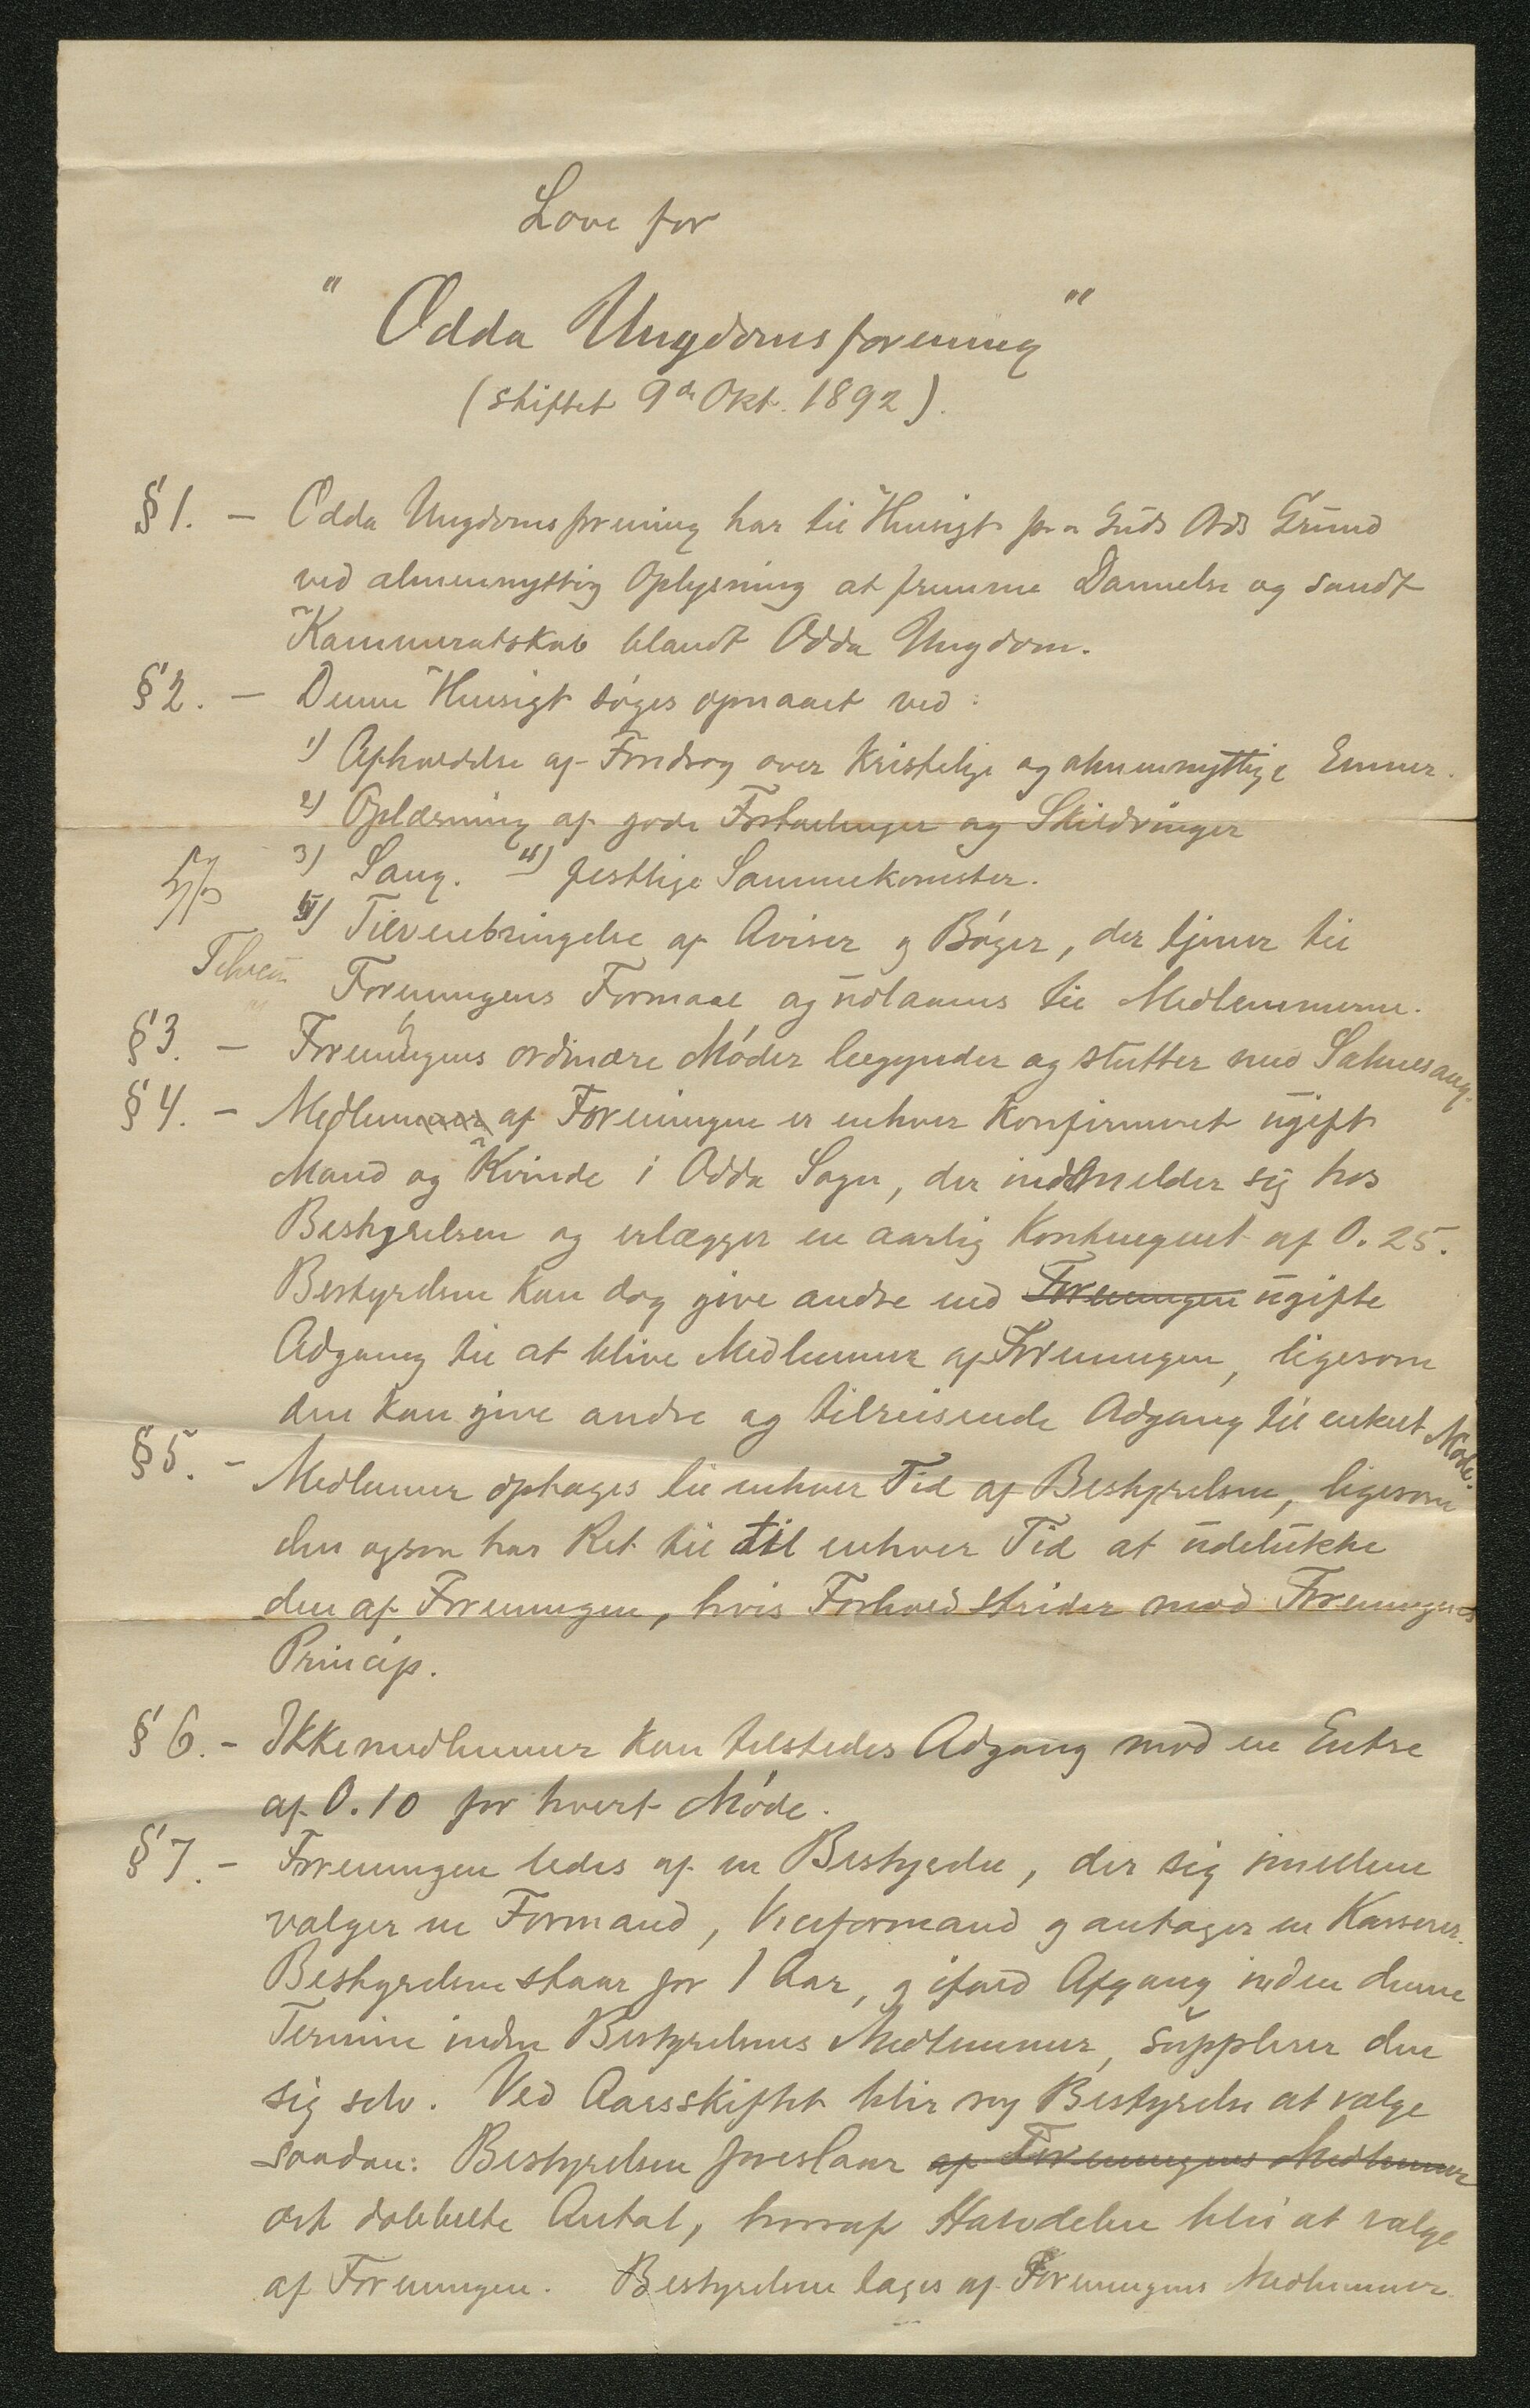 Love for
"Odda Ungdomsforening"
(stiftet 9de Okt. 1892).
§ 1. — Odda Ungdomsforening har til Hensigt paa Guds Ords Grund
ved almennyttig Oplysning at fremme Dannelse og sandt
Kammeratskab blandt Odda Ungdom.
§ 2. — Denne Hensigt søges opnaaet ved:
1) Afholdelse af Foredrag over kristelige og almennyttige Emner.
2) Oplæsning af gode Fortællinger og Skildringer
3) Sang. 4) festlige Sammekomster.
5) Tilveiebringelse af Aviser og Bøger, der tjener til
Foreningens Formaal og udlaanes til Medlemmerne.
§ 3. — Foreningens ordinære Møder begynder og slutter med Salmesang.
§ 4. — Medlemmer af Foreningen er enhver konfirmeret ugift
Mand og Kvinde i Odda Sogn, der indmelder sig hos
Bestyrelsen og erlægger en aarlig Kontingent af 0.25.
Bestyrelsen kan dog give andre end Foreningen ugifte
Adgang til at blive Medlemmer af Foreningen, ligesom
den kan give andre og tilreisende Adgang til enkelt Møde.
§ 5. — Medlemmer optages til enhver Tid af Bestyrelsen, ligesom
den ogsaa har Ret til til enhver Tid at udelukke
den af Foreningen, hvis Forhold strider mod Foreningens
Princip.
§ 6. — Ikkemedlemmer kan tilstedes Adgang mod en Entre
af 0.10 for hvert Møde.
§ 7. — Foreningen ledes af en Bestyrelse, der sig imellem
vælger en Formand, Viceformand og antager en Kasserer.
Bestyrelsen staar for 1 Aar, og ifald Afgang inden denne
Termin inden Bestyrelsens Medlemmer, supplerer den
sig selv. Ved Aarsskiftet blir ny Bestyrelse at vælge
saadan: Bestyrelsen foreslaar af Foreningens Medlemmer
det dobbelte Antal, hvoraf Halvdelen blir at vælge
af Foreningen. Bestyrelsen tages af Foreningens Medlemmer.